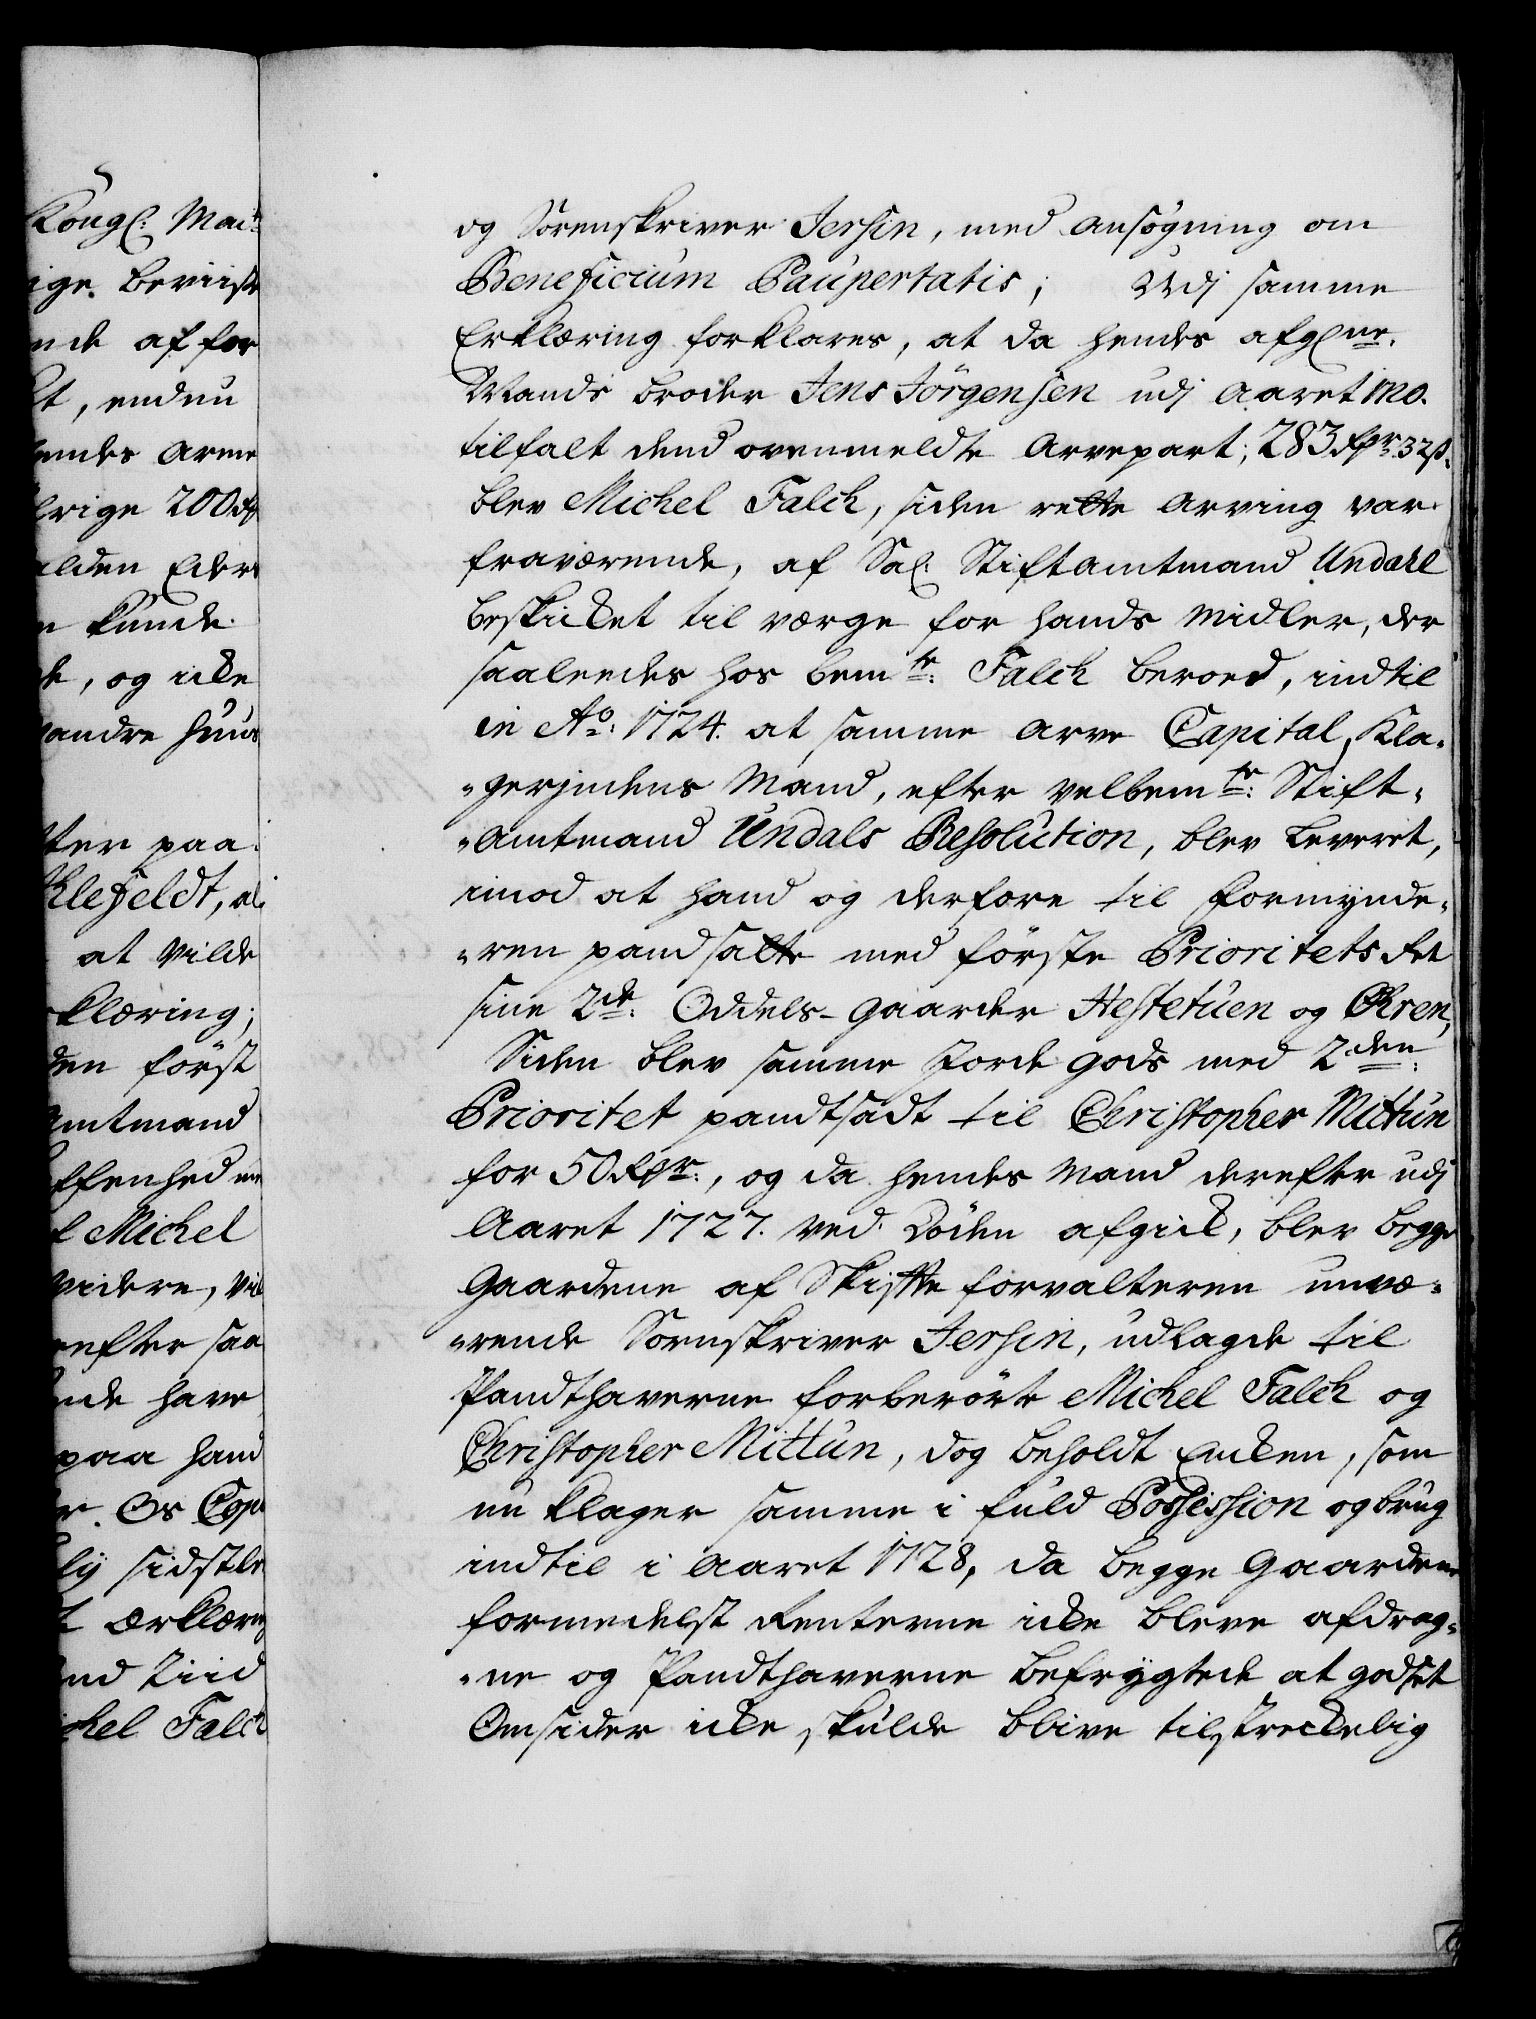 Kongl: Mai:
ige beviist
nde af for
t, endnu
endes arme
lrige 200 rd
alden Eders
n kunde
de, og icke
andre huus
tter paa
Klefeldt, al
at vilde
klæring;
den först
Amtmand
ffenhed
l Michel
videre, vil
refter saa
nde have
paa hand
r. Os Cop
lig sidstle
t ærklæring
nd Tiid
chel Falch
og Sorenskriver Jersin, med ansögning om
Beneficium Paupertatis; Udj samme
Erklæring forklares, at da hendes afgl:ne
Mands broder Jens Jörgensen udj aaret 1710.
tilfalt dend ovenmeldte Arvepart, 283 rdr 32 s,
blev Michel Falch, siden rette Arving var
fraværende, af Sal: Stiftamtmand Undahl
beskicket til værge for hands Midler, der
saaledes hos bem:te Falch beroed, indtil
in Ao: 1724. at samme arve Capital, Kla-
-gerindens Mand, efter velbem:te Stift-
-amtmand Undals Resolution, blev leveret,
imod at hand og derfore til formynde-
-ren pandsatte med förste Prioritets Ret
sine 2de: Oddels-gaarder Hestetuen og Ören,
Siden blev samme Jorde gods med 2den:
Prioritet pandtsadt til Christopher Mittun
for 50 Rdr:, og da hendes Mand derefter udj
Aaret 1727. ved Döden afgick, blev begge
Gaardene af Skifte forvalteren unvæ-
-rende Sornskriver Jersin, udlagde til
Pandthaverne forberörte Michel Falch og
Christopher Mittun, dog beholdt Encken, som
nu klager samme i fuld Possession og brug
indtil i Aaret 1728, da begge Gaardene
formedelst Renterne icke bleve afdrag-
-ne og Pandthaverne befrygtede at godset
Omsider icke skulde blive tilstreckelig